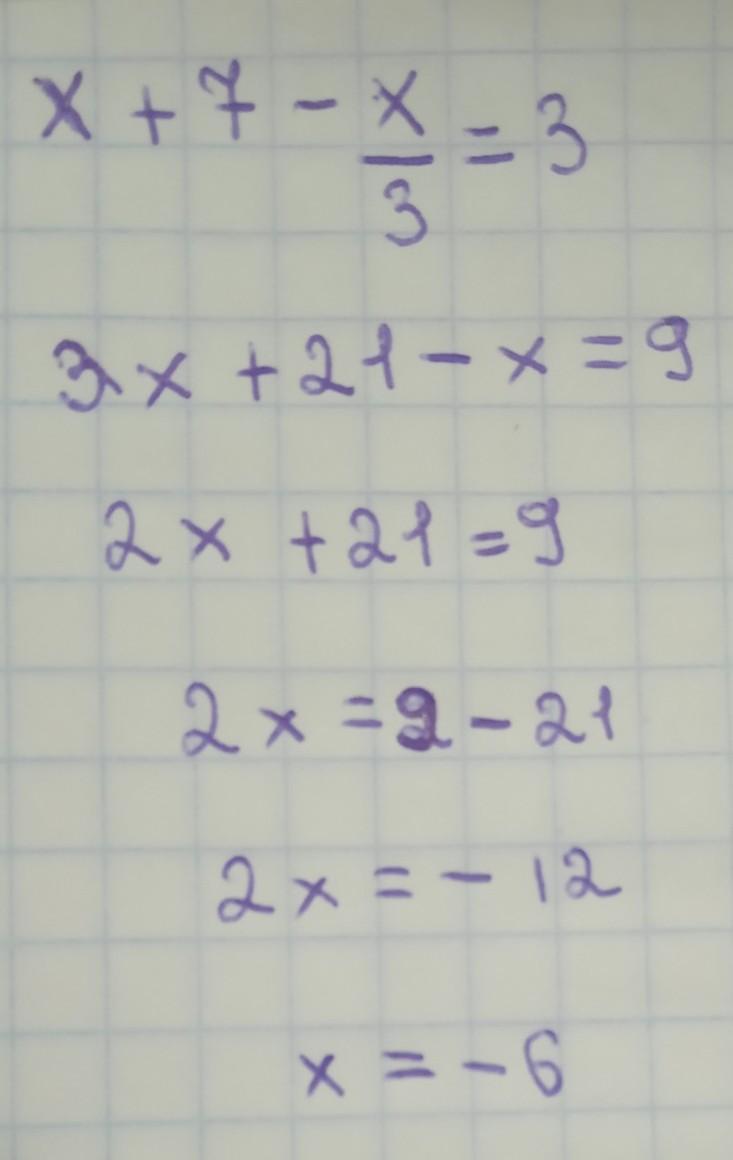 x + 7 - x/3 = 3
3x + 21 - x = 9
2x + 21 = 9
2x = 9 - 21
2x = - 12
x = - 6